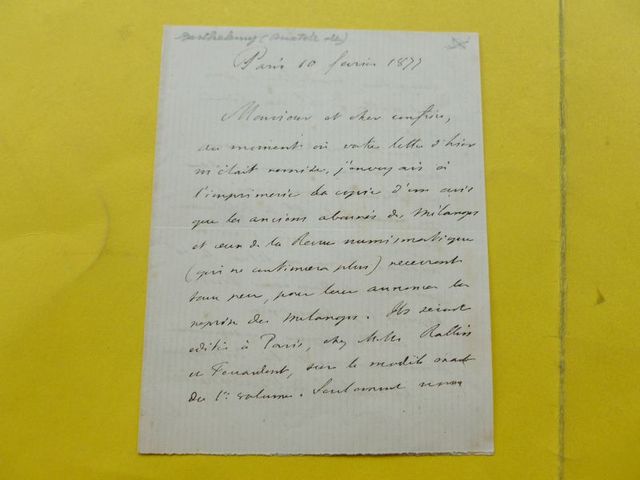 Barthelemy (Anatole de)
Paris 10 fevrier 1877
Monsieur et cher confrère,
au moment où votre lettre d'hier
m'était remise, j'envoyais à
l'imprimerie la copie d'un avis
que les anciens abonnés des Mélanges
et ceux de la Revue numismatique
(qui ne continuera plus) recevront
sous peu, pour leur annoncer la
reprise des Mélanges. Ils seront
edités à Paris, chez MMrs Rollin
et Feuardent, sur le modèle exact
du 1er volume. Seulement nous